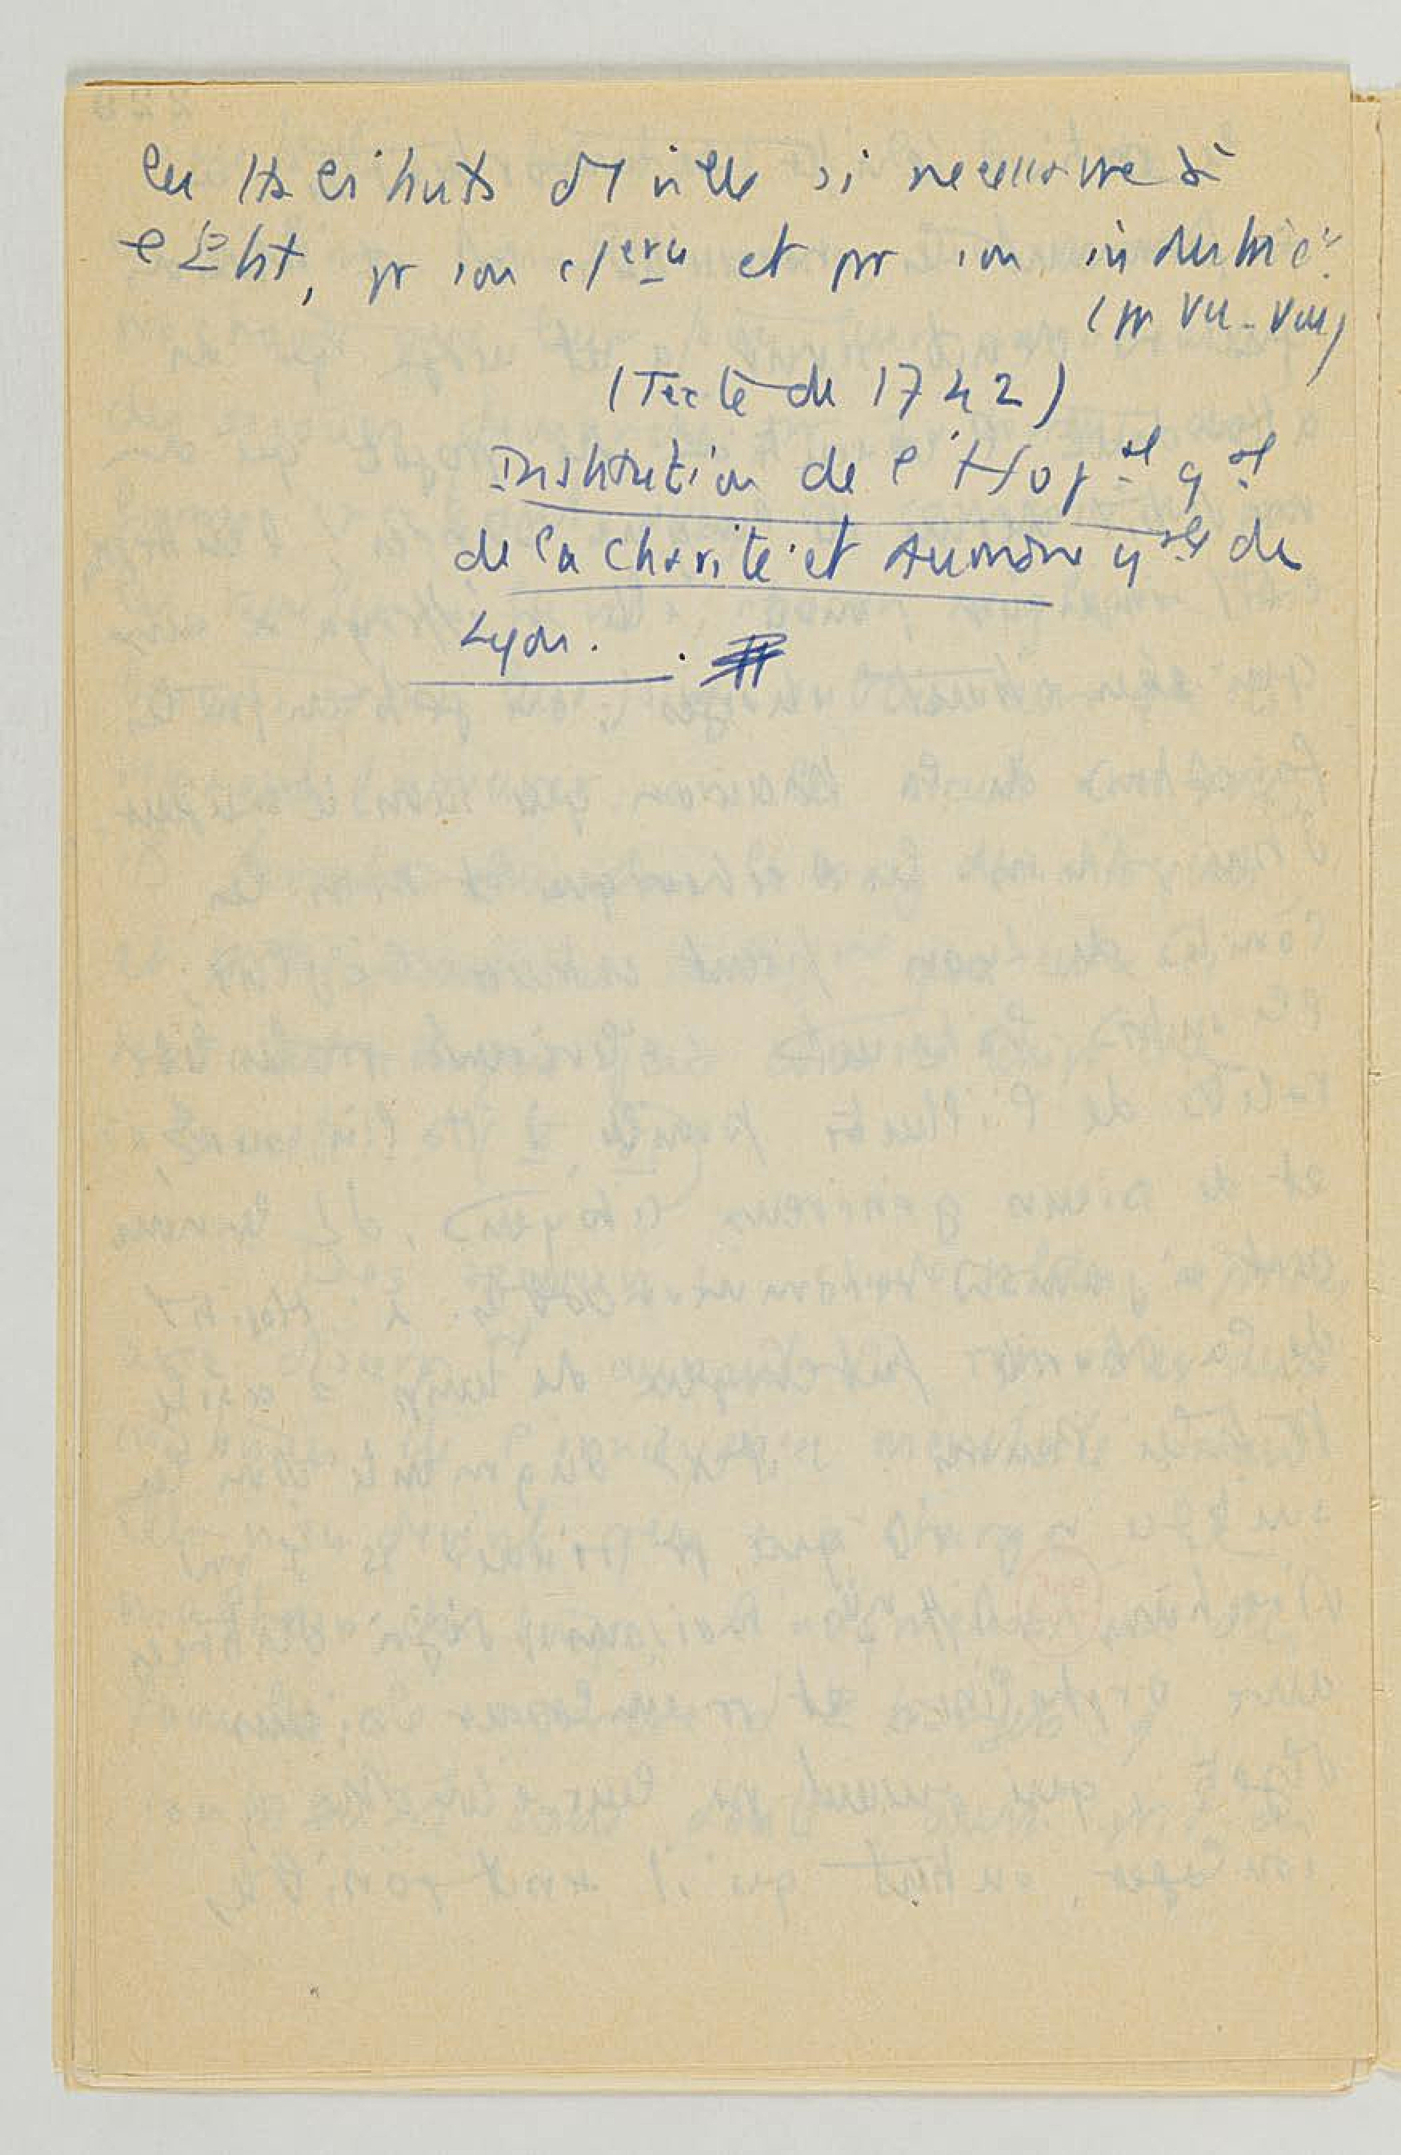 les habitants d'1 ville si nécessaire à
l'Etat, pr son c/erce et pr son industrie".
(pp VII-VIII)
(Texte de 1742)
Institution de l'Hopal gal
de la Charité et Aumône gale de
Lyon.